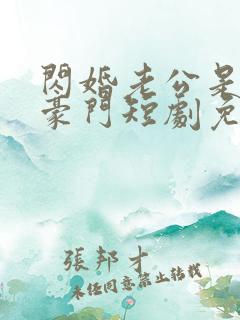 閃婚老公是
豪門短劇免
張邦才
未经同意禁止转载